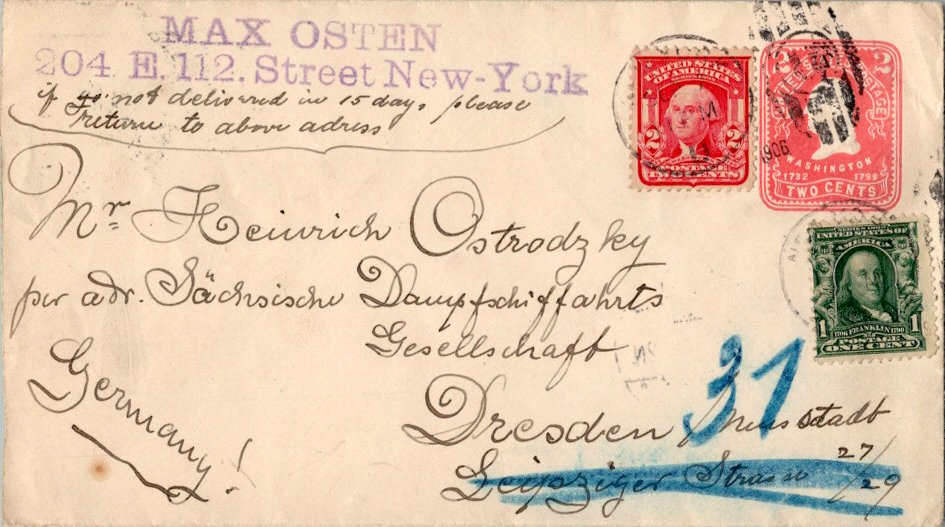 MAX OSTEN
204 E. 112. Street New-York
if not delivered in 15 days please
return to above adress
UNITED STATES
OF AMERICA
2 2
TWO CENTS
2 2
UNITED STATES POSTAGE
1906
WASHINGTON
1732 1799
TWO CENTS
Mr Heinrich Ostrodzky
per adr. Sächsische Dampfschiffahrts
Gesellschaft
Germany!
SERIES 1902
UNITED STATES OF
AMERICA
1 1706 FRANKLIN 1790 1
POSTAGE
ONE CENT
31
Dresden Neustadt
Leipziger Strasse 27/29